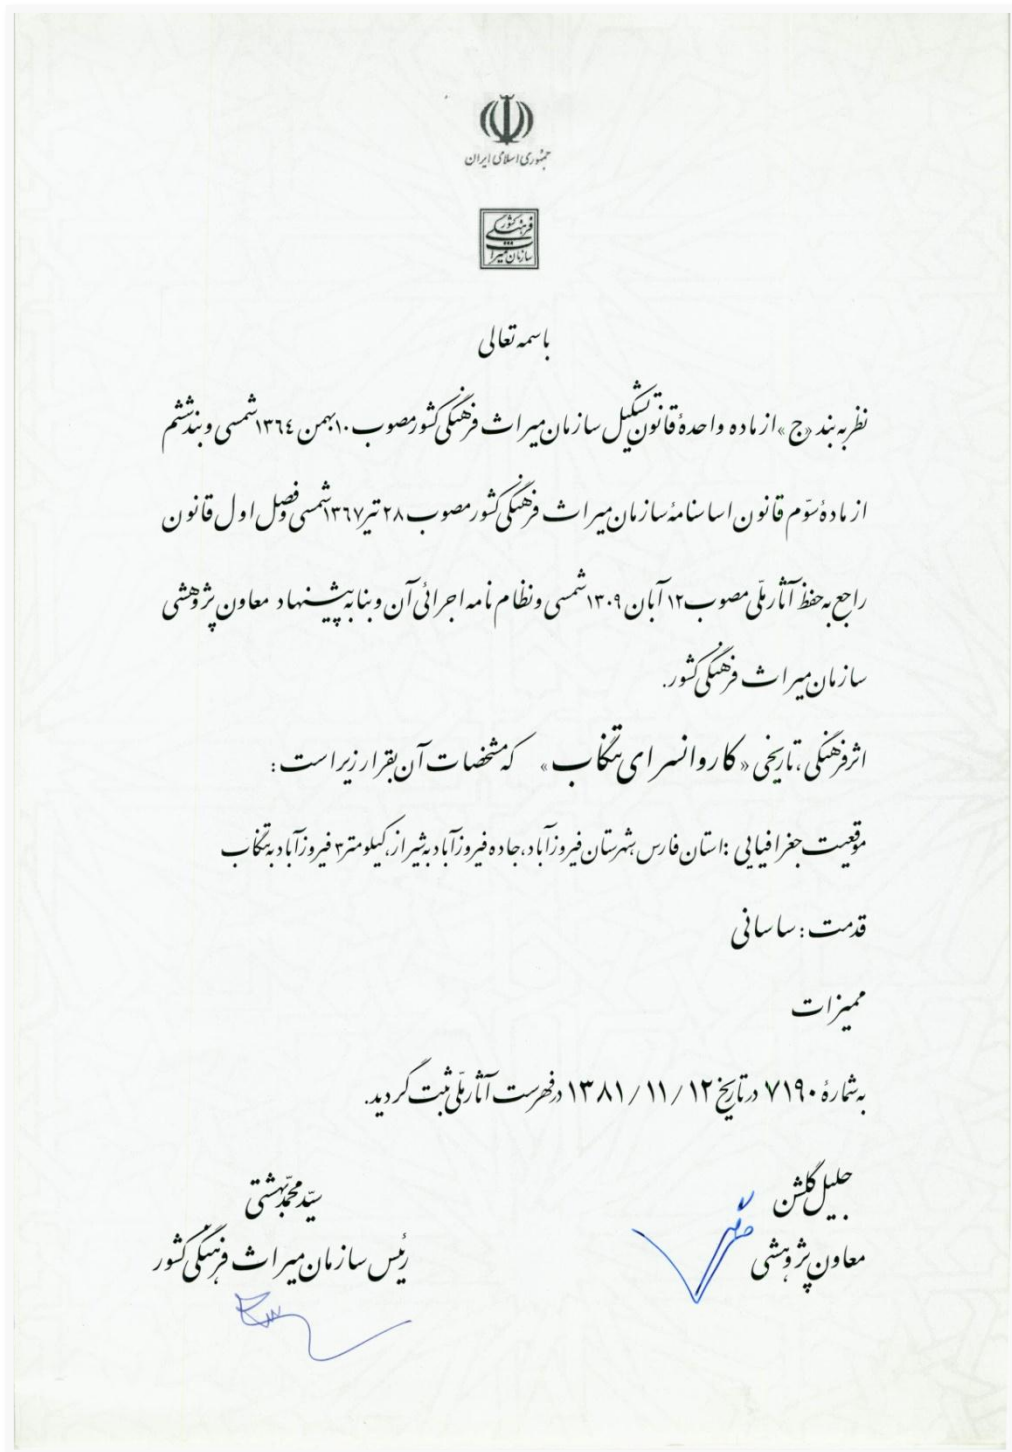 جمهوری اسلامی ایران
سازمان میراث فرهنگی کشور
باسمه تعالی
نظر به بند «ج» از ماده واحدهٔ قانون تشکیل سازمان میراث فرهنگی کشور مصوب ۱۰ بهمن ۱۳٦٤ شمسی و بند ششم
از مادهٔ سوّم قانون اساسنامهٔ سازمان میراث فرهنگی کشور مصوب ۲۸ تیر ۱۳٦۷ شمسی و فصل اول قانون
راجع به حفظ آثار ملّی مصوب ۱۲ آبان ۱۳۰۹ شمسی و نظام نامه اجرائی آن و بنا به پیشنهاد معاون پژوهشی
سازمان میراث فرهنگی کشور.
اثر فرهنگی، تاریخی «کاروانسرای تنگاب» که مشخصات آن بقرار زیر است :
موقعیت جغرافیایی : استان فارس، شهرستان فیروزآباد، جاده فیروزآباد به شیراز، کیلومتر ۳ فیروزآباد به تنگاب
قدمت : ساسانی
ممیزات
به شمارهٔ ۷۱۹۰ در تاریخ ۱۲ / ۱۱ / ۱۳۸۱ در فهرست آثار ملّی ثبت گردید.
جلیل گلشن
معاون پژوهشی
سیّد محمّد بهشتی
رئیس سازمان میراث فرهنگی کشور